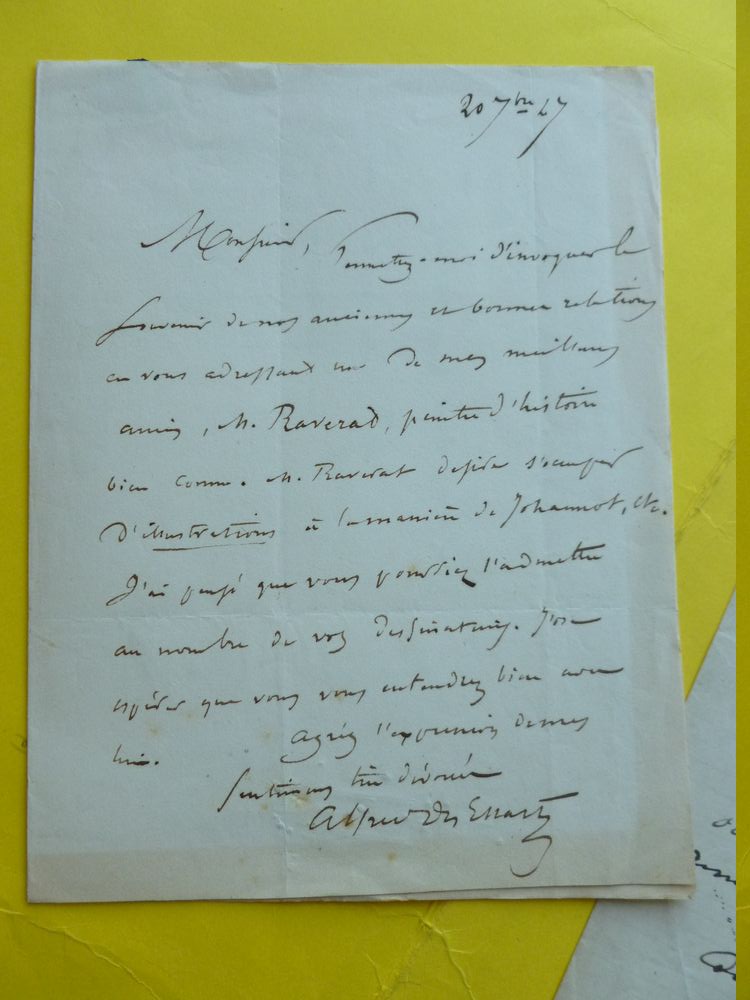 20 7bre 47
Monsieur,
Permettez-moi d'invoquer le
souvenir de nos anciennes et bonnes relations
en vous adressant un de mes meilleurs
amis, M. Raverat, peintre d'histoire
bien connu. M. Raverat desire s'occuper
d'illustrations à la manière de Johannot, etc.
J'ai pensé que vous pourriez l'admettre
au nombre de vos dessinateurs. J'ose
espérer que vous vous entendrez bien avec
lui. Agréez l'expression de mes
sentimens très dévoués
Alfred des Essarts